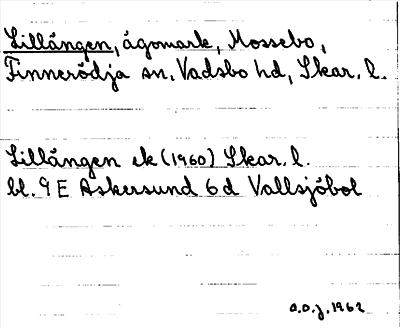 Lillängen, ägomark, Mossebo,
Finnerödja sn, Vadsbo hd, Skar. l.
Lillängen ek (1960) Skar. l.
bl. 9 E Askersund 6 d Vallsjöbol
O.O.J. 1962